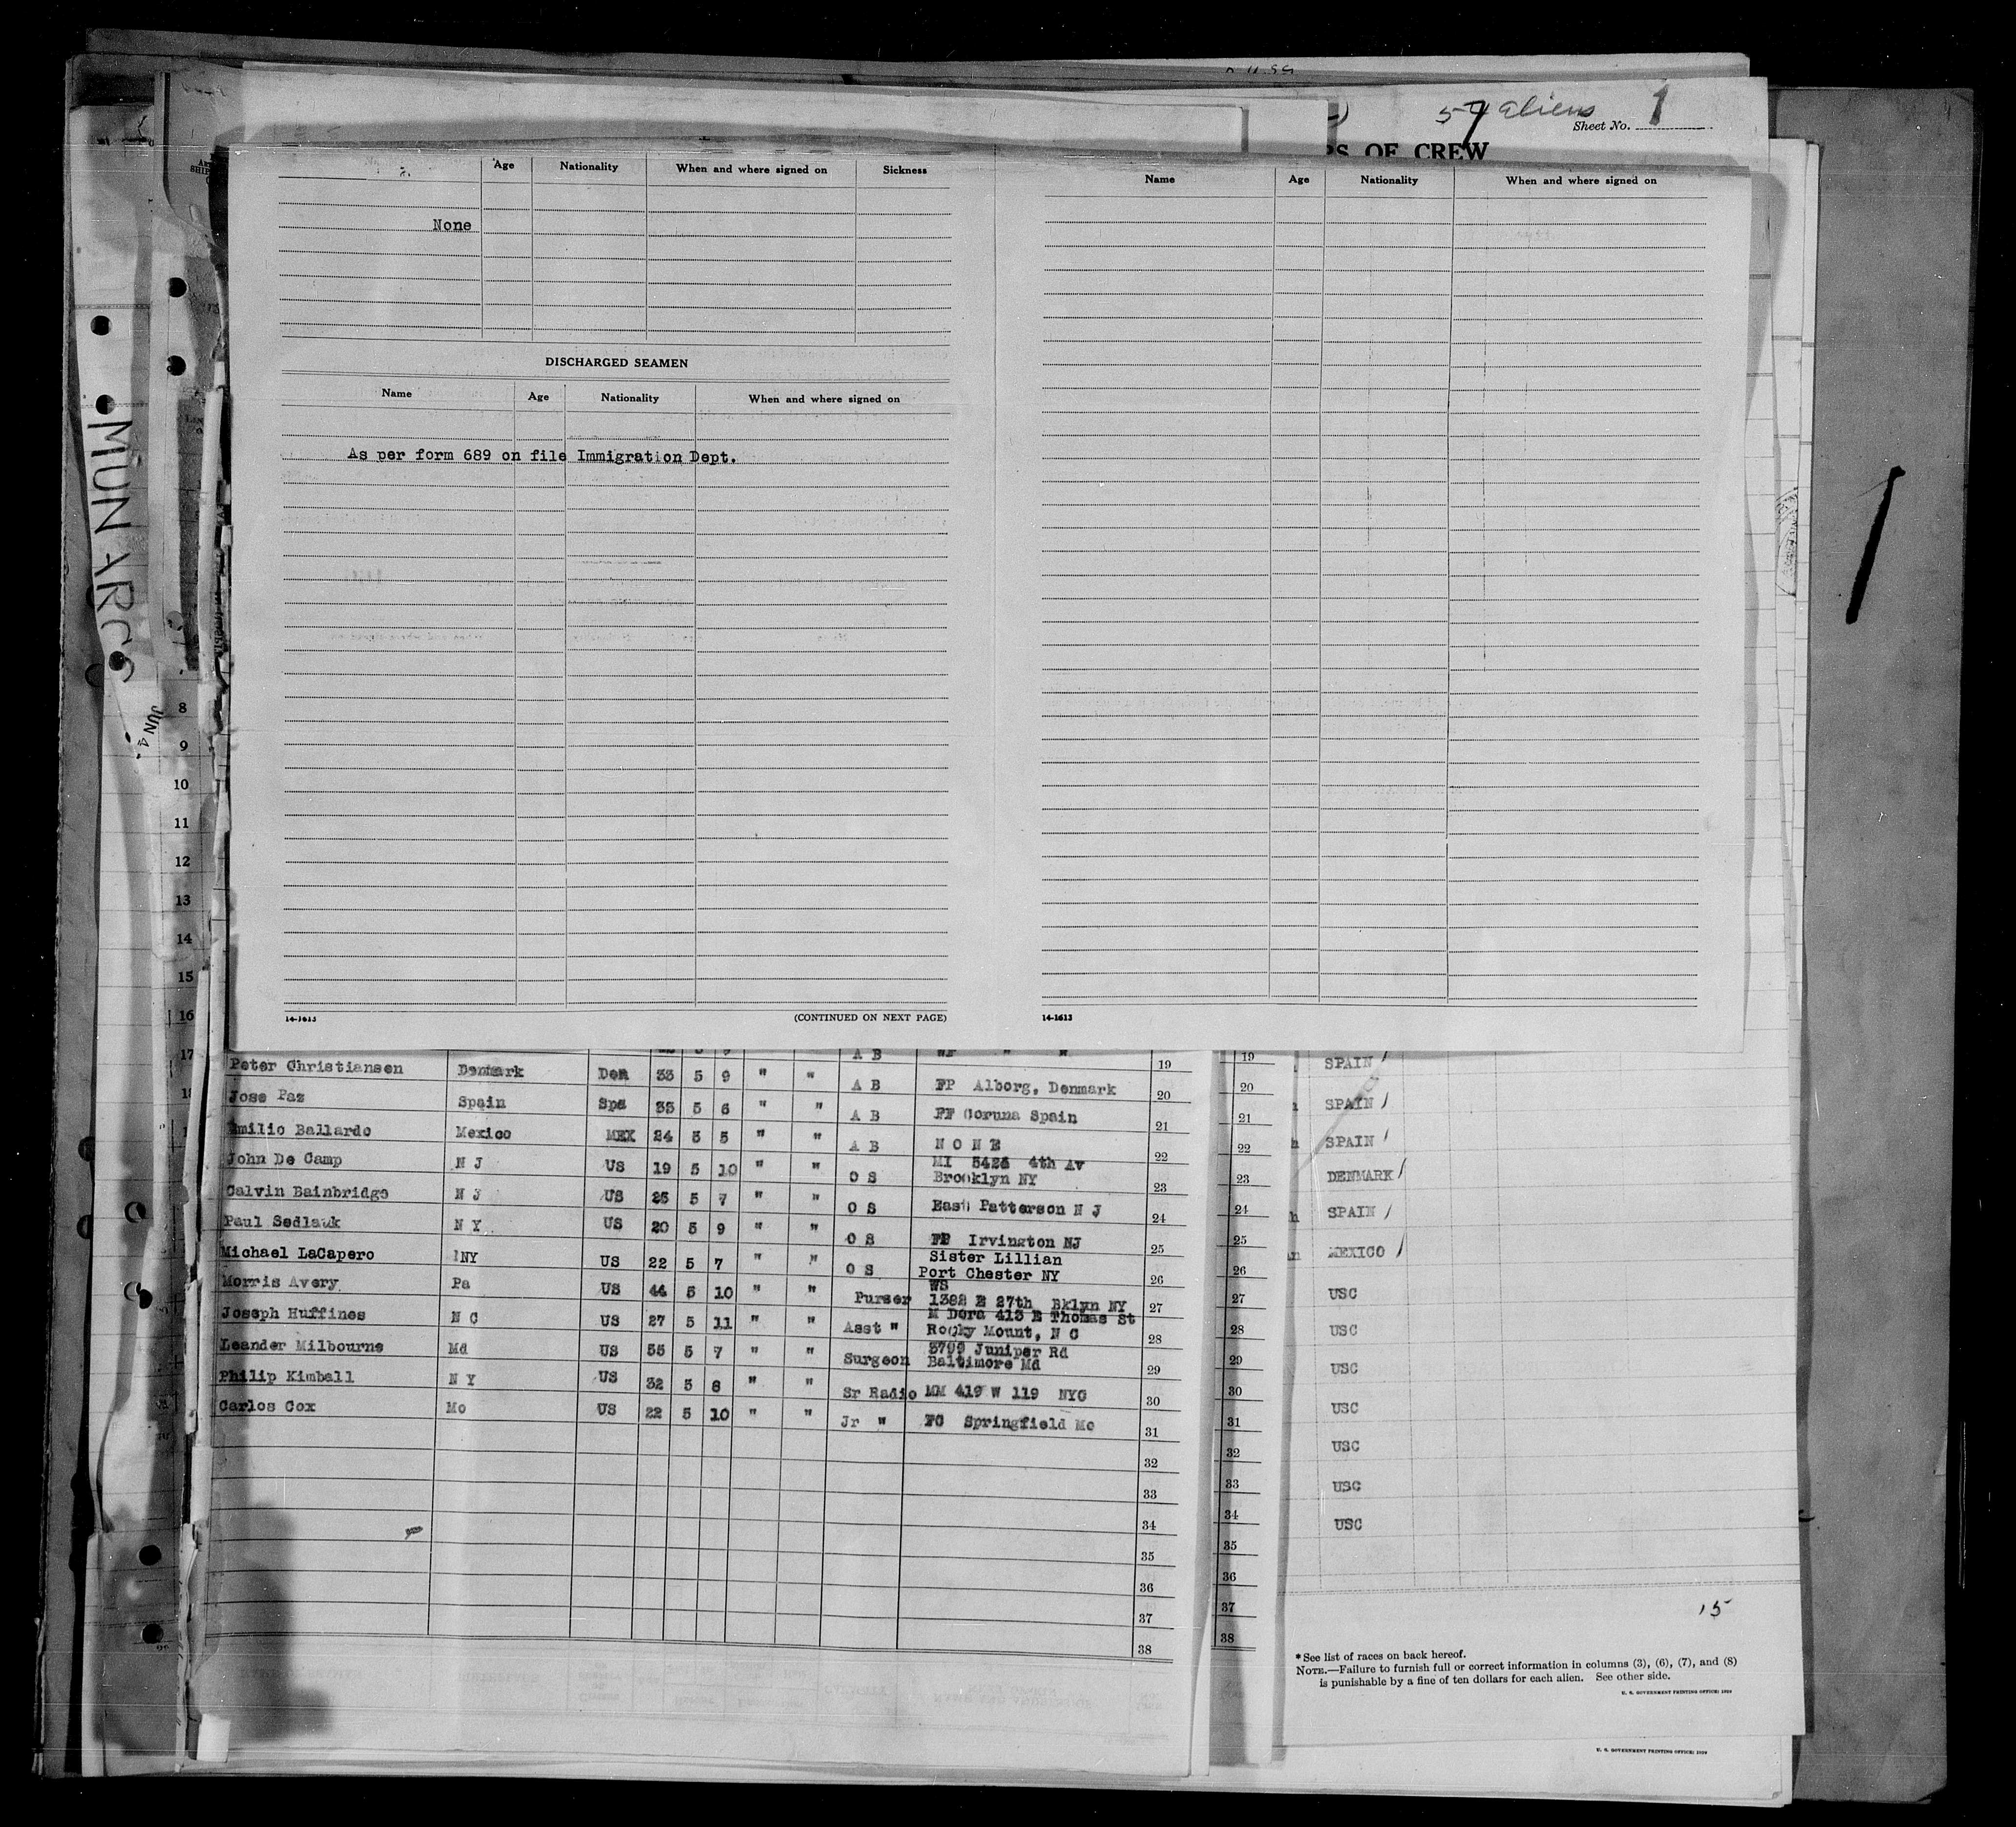 57 aliens
Sheet No. 1
OF CREW
Age Nationality When and where signed on Sickness
None
DISCHARGED SEAMEN
Name Age Nationality When and where signed on
As per form 689 on file Immigration Dept.
14-1613 (CONTINUED ON NEXT PAGE)
Name Age Nationality When and where signed on
14-1613
MUNARGO
JUN 4
8
9
10
11
12
13
14
15
16
17
A B 19
Peter Christiansen Denmark Den 33 5 9 " " A B FP Alborg, Denmark 20
Jose Paz Spain Spa 33 5 6 " " A B FF Coruna Spain 21
Emilio Ballardo Mexico MEX 24 5 5 " " A B N O N E 22
John De Camp N J US 19 5 10 " " O S MI 4th Av
Brooklyn NY 23
Calvin Bainbridge N J US 25 5 7 " " O S East Patterson N J 24
Paul Sedlauk N Y US 20 5 9 " " O S Irvington NJ 25
Michael LaCapero NY US 22 5 7 " " O S Sister Lillian
Port Chester NY 26
Morris Avery Pa US 44 5 10 " " Purser WS
1382 E 27th Bklyn NY 27
Joseph Huffines N C US 27 5 11 " " Asst " M Dora 413 E Thomas St
Rocky Mount, N C 28
Leander Milbourne Md US 55 5 7 " " Surgeon 3799 Juniper Rd
Baltimore Md 29
Philip Kimball N Y US 32 5 8 " " Sr Radio MM 419 W 119 NYC 30
Carlos Cox Mo US 22 5 10 " " Jr " Springfield Mo 31
32
33
34
35
36
37
38
19
20
21
22
23
24
25
26
27
28
29
30
31
32
33
34
35
36
37
38
SPAIN
SPAIN
SPAIN
DENMARK
SPAIN
MEXICO
USC
USC
USC
USC
USC
USC
USC
15
* See list of races on back hereof.
NOTE.—Failure to furnish full or correct information in columns (3), (6), (7), and (8)
is punishable by a fine of ten dollars for each alien. See other side.
U. S. GOVERNMENT PRINTING OFFICE: 1939
U. S. GOVERNMENT PRINTING OFFICE: 1939